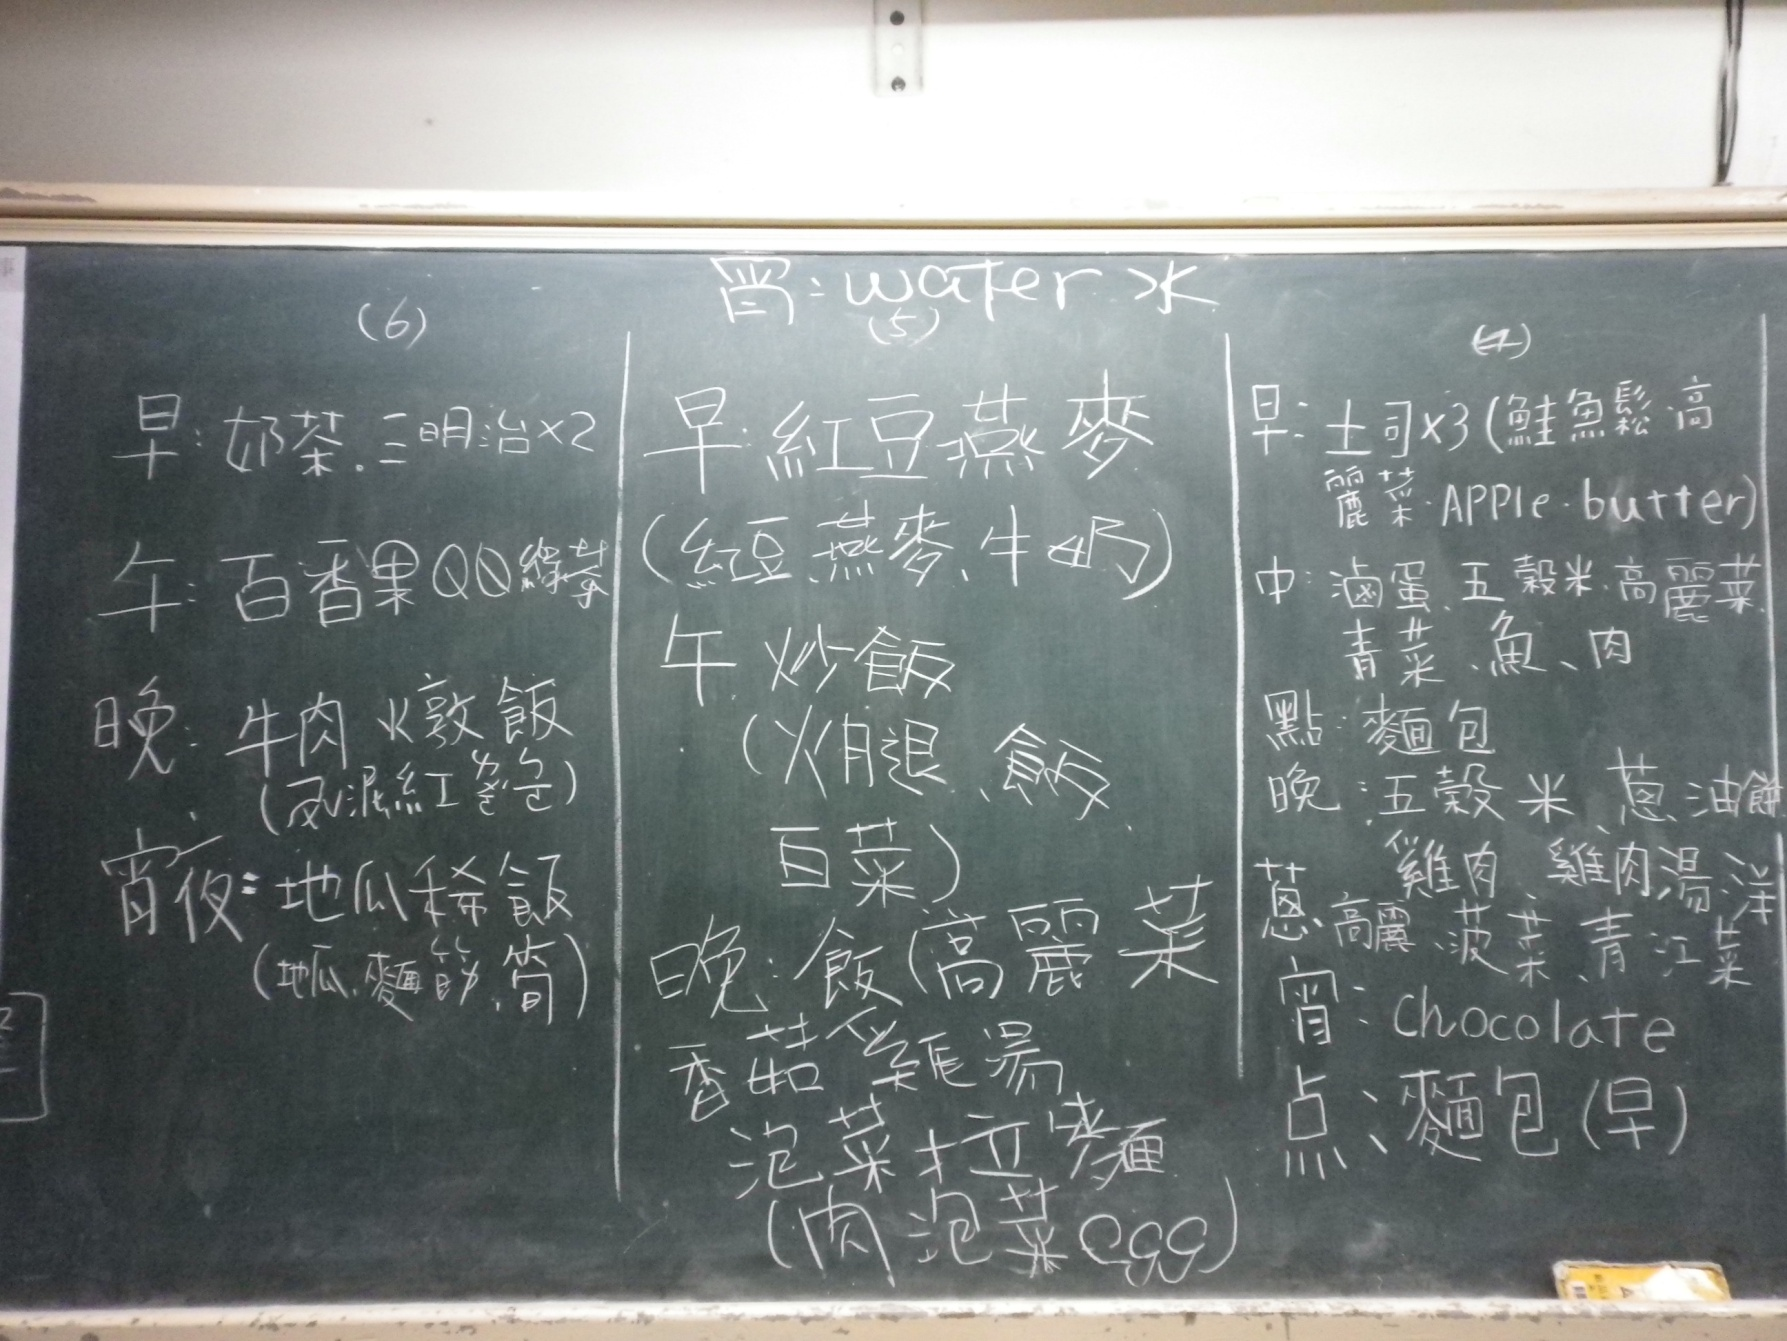 宵: water 水
(6)
早: 奶茶. 三明治×2
午: 百香果QQ綠茶
晚: 牛肉火燉飯
紅
宵夜: 地瓜稀飯
(地瓜、麵筋、筍)
(5)
早: 紅豆燕麥
(紅豆、燕麥、牛奶)
午 炒飯
(火腿、飯
百菜)
晚: 飯(高麗菜
香菇雞湯
泡菜拉麵
(肉泡菜egg)
(4)
早: 土司×3(鮭魚鬆.高
麗菜.APPle.butter)
中: 滷蛋、五穀米、高麗菜
青菜、魚、肉
點: 麵包
晚: 五穀米、蔥油餅
雞肉、雞肉湯、洋
蔥、高麗、菠菜、青江菜
宵: chocolate
点、麵包(早)